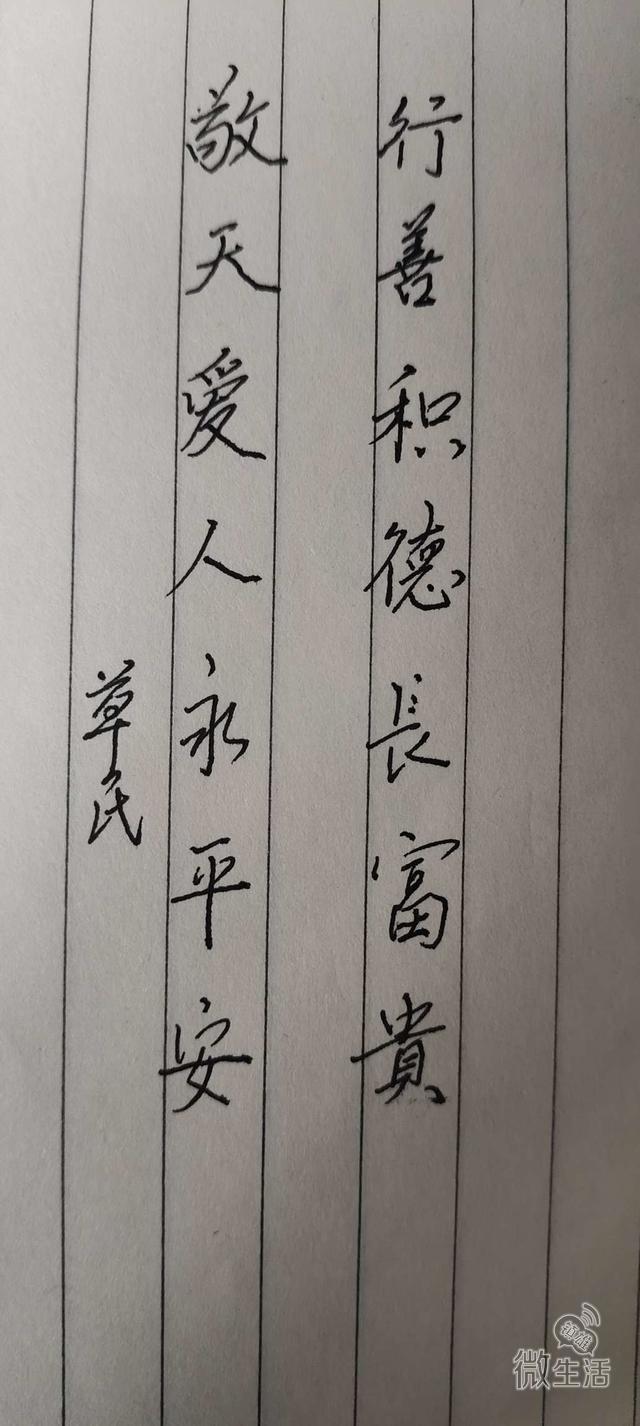 行善积德長富貴
敬天爱人永平安
草民
镇雄
微生活